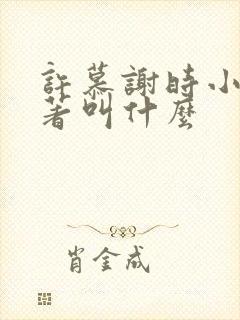 許慕謝時小
著叫什麼
肖金成